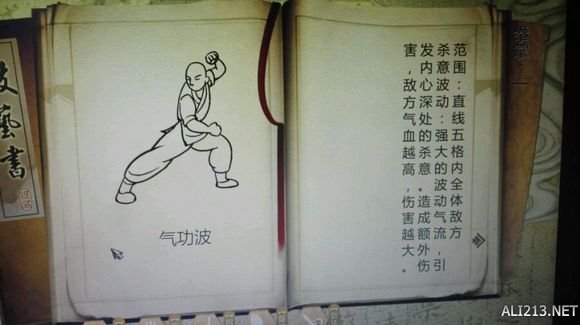 藝書
气功波
拳掌
范围:直线五格内全体敌方
杀意波动:强大的波动气流,引
发内心深处的杀意。造成额外伤
害,敌方气血越高,伤害越大。
ALI213.NET